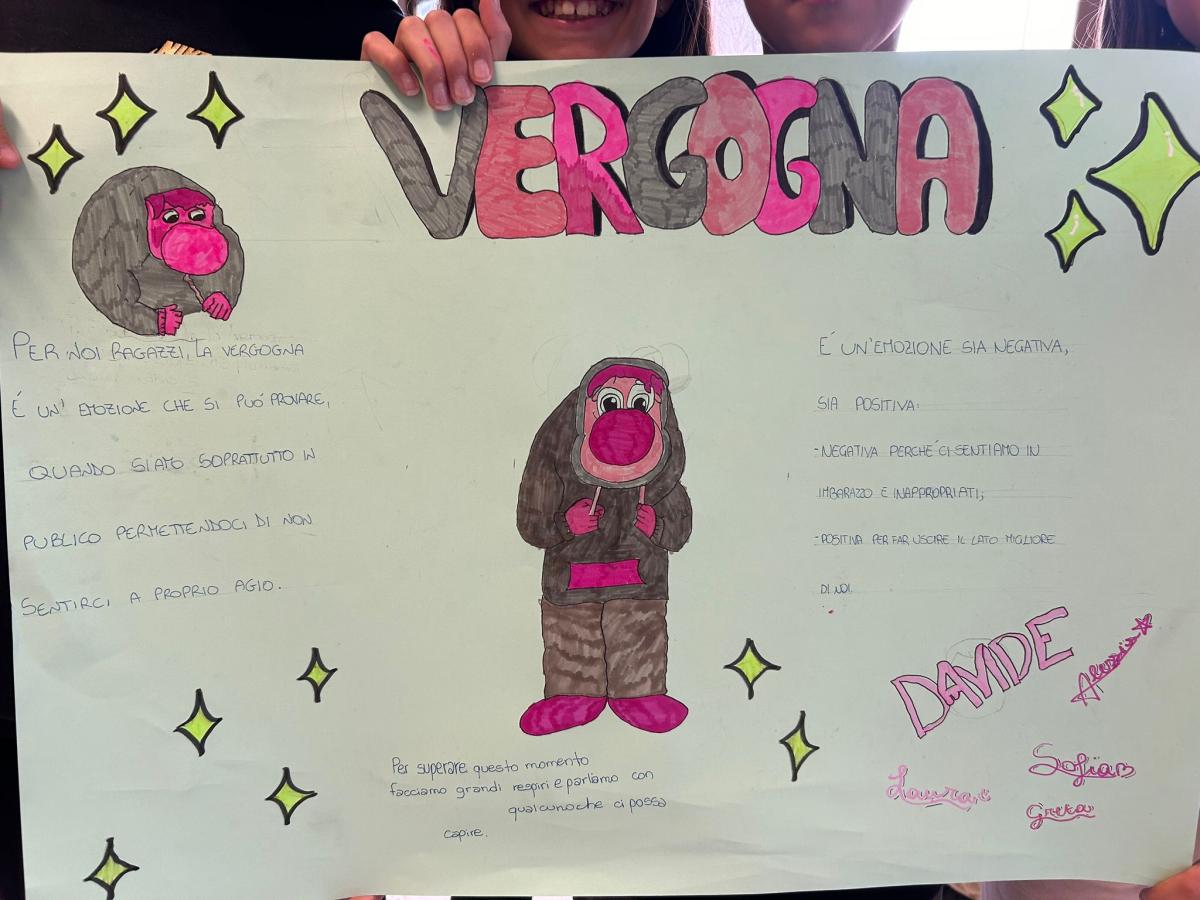 VERGOGNA
PER NOI RAGAZZI, LA VERGOGNA
É UN' EMOZIONE CHE SI PUÓ PROVARE,
QUANDO SIAMO SOPRATTUTTO IN
PUBLICO PERMETTENDOCI DI NON
SENTIRCI A PROPRIO AGIO.
É UN'EMOZIONE SIA NEGATIVA,
SIA POSITIVA:
-NEGATIVA PERCHÉ CI SENTIAMO IN
IMBARAZZO E INAPPROPRIATI;
-POSITIVA PER FAR USCIRE IL LATO MIGLIORE
DI NOI.
Per superare questo momento
facciamo grandi respiri e parliamo con
qualcuno che ci possa
capire.
DAVIDE
Alessia
Sofia B
Laura
Greta